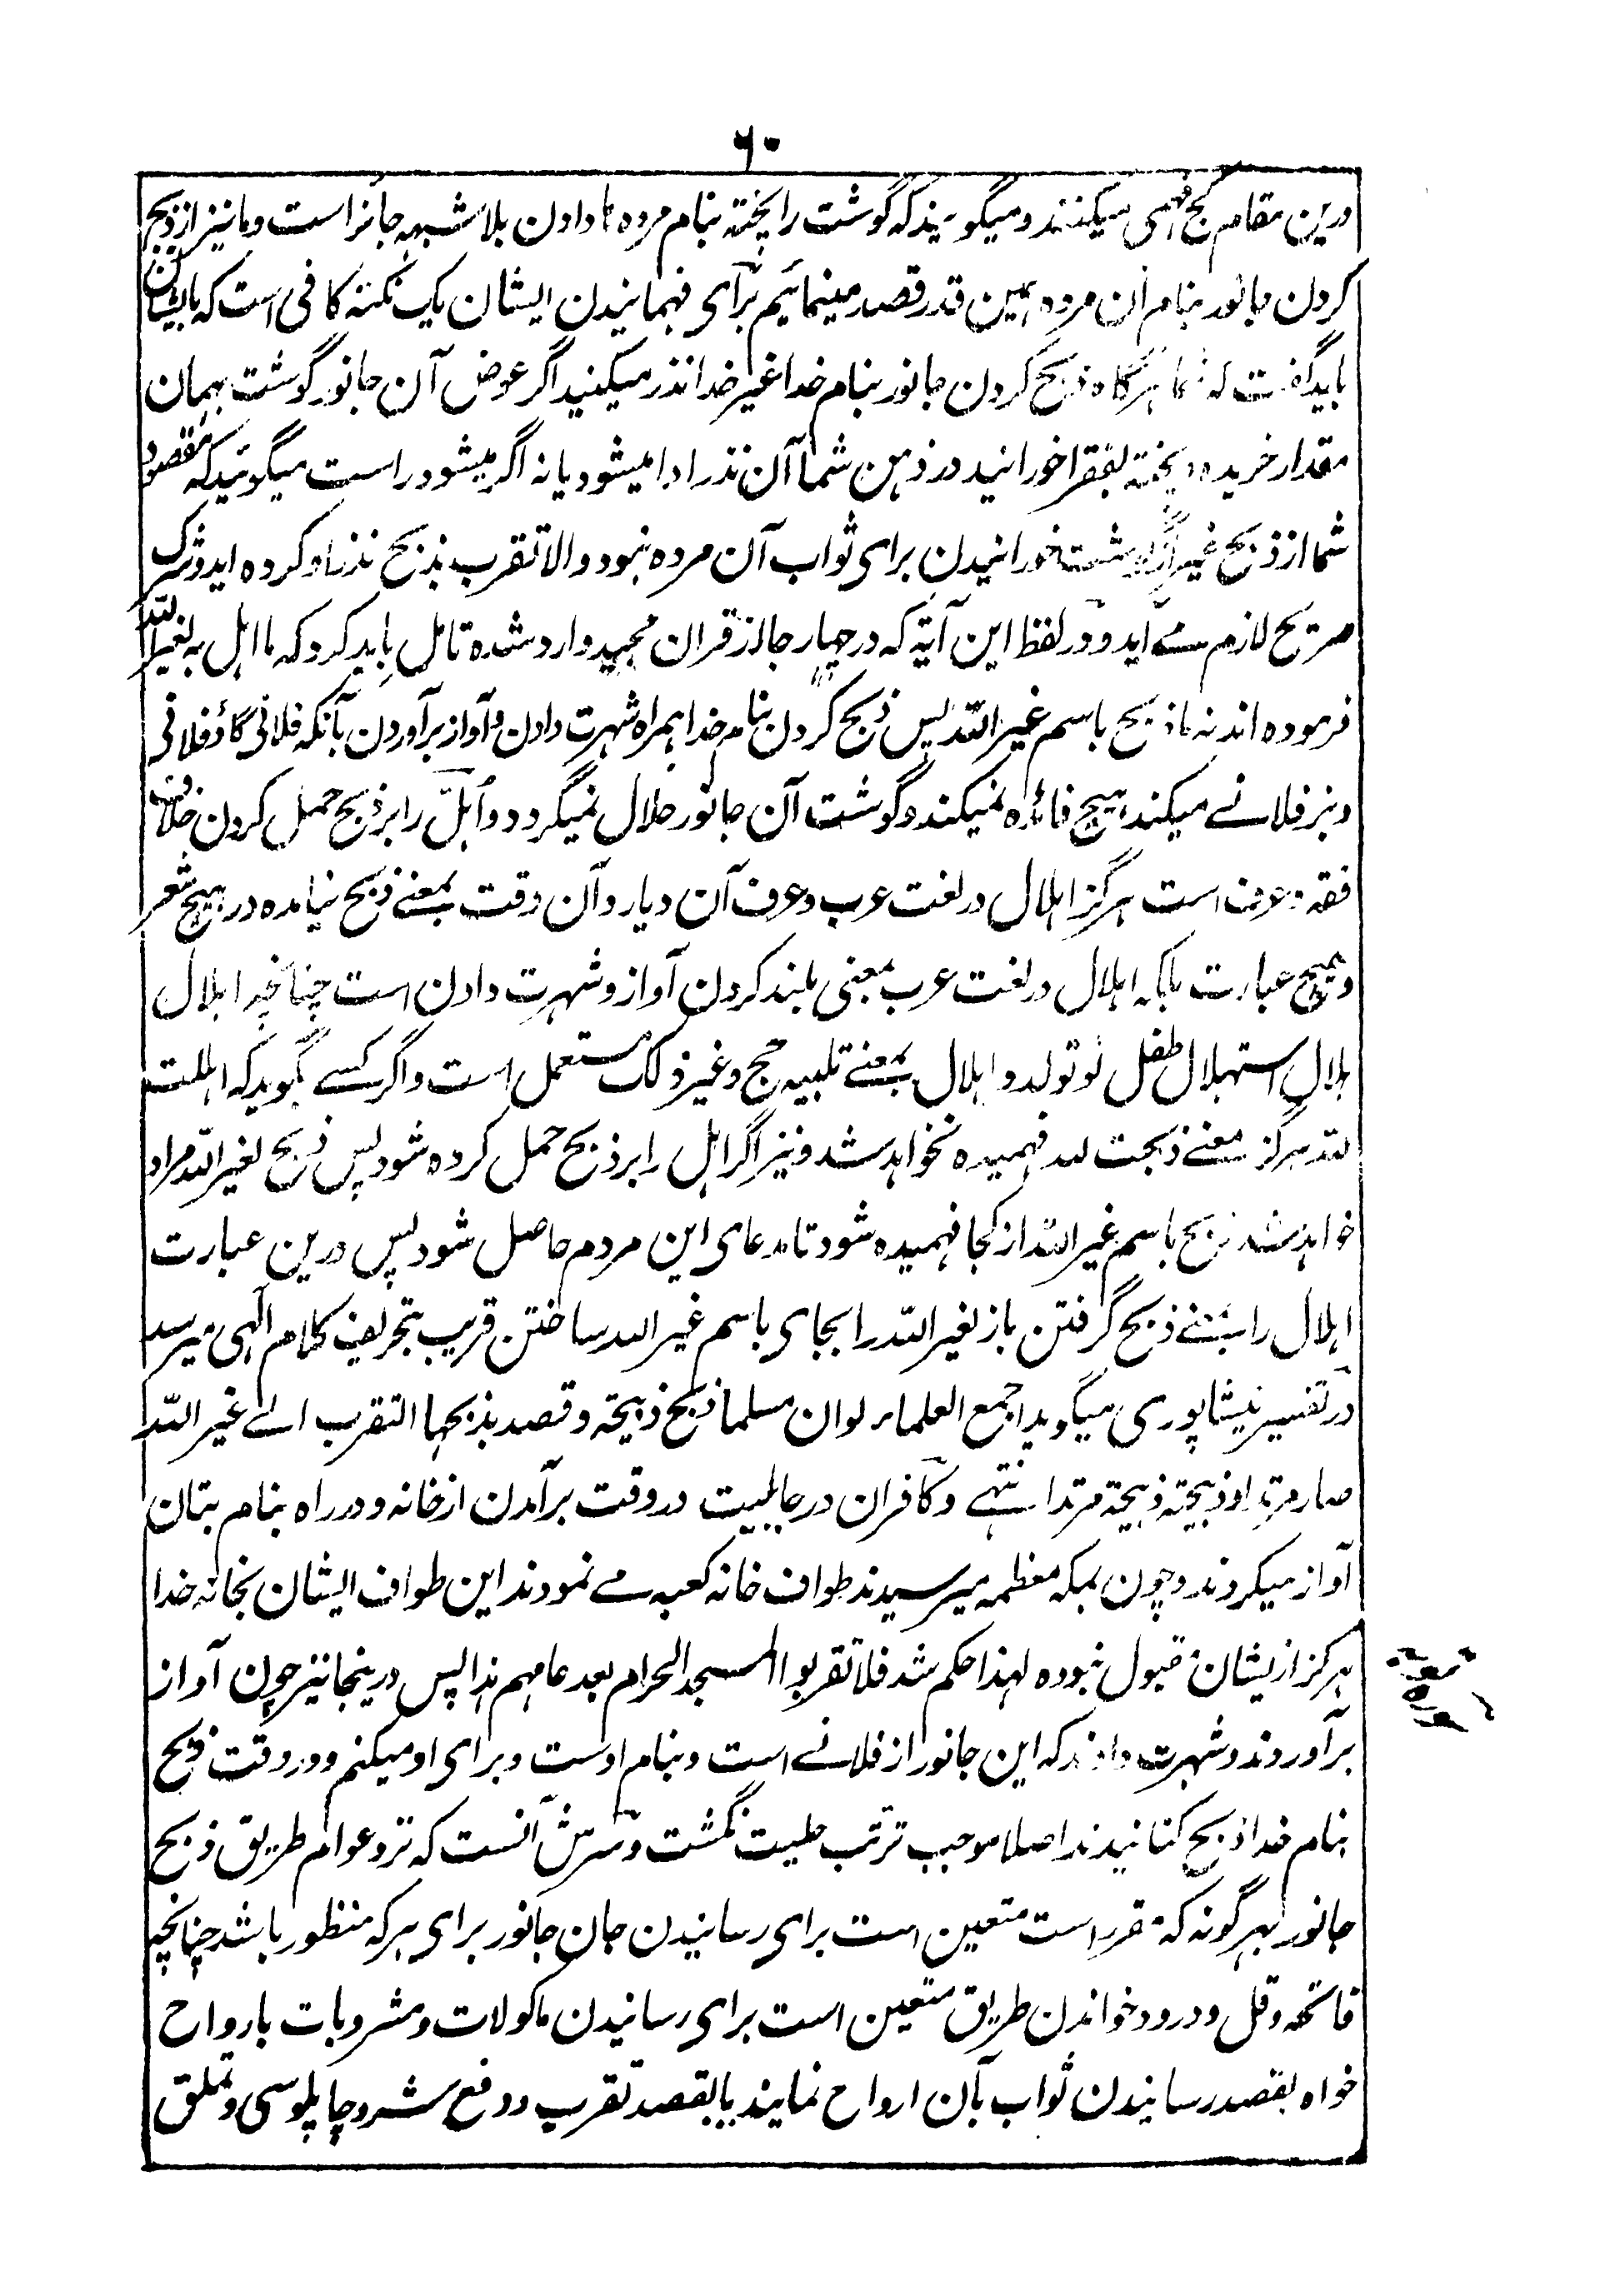 ۶۰
درین مقام کج فهمی میکنند و میگویند که گوشت را پخته بنام مرده ها دادن بلا شبهه جائز است و ما نیز از ذبح
کردن جانور بنام آن مرده همین قدر قصد مینمائیم برای فهمانیدن ایشان یک نکته کافی است که بایشان
باید گفت که شما هرگاه ذبح کردن جانور بنام خدا غیر خدا نذر میکنید اگر عوض آن جانور گوشت بهمان
مقدار خریده و پخته بفقرا خورانید در ذهن شما آن نذر ادا میشود یا نه اگر میشود راست میگوئید که مقصود
شما از ذبح غیر از گوشت خورانیدن برای ثواب آن مرده نبود والا تقرب بذبح نذر او کرده اید و شرک
صریح لازم مے آید و در لفظ این آیة که در چهار جا از قرآن مجید وارد شده تامل باید کرد که ما اهل به لغیر الله
فرموده اند نه ما ذبح باسم غیر الله پس ذبح کردن بنام خدا همراه شهرت دادن و آواز برآوردن بآنکه فلانی گاؤ فلانی
و بز فلانے میکند هیچ فائده نمیکند و گوشت آن جانور حلال نمیگردد و اُهِلَّ را بر ذبح حمل کردن خلاف
فقه و عرف است هرگز اهلال در لغت عرب و عرف آن دیار و آن وقت بمعنے ذبح نیامده در هیچ شعر
و هیچ عبارت بلکه اهلال در لغت عرب بمعنی بلند کردن آواز و شهرت دادن است چنانچه اهلال
هلال استهلال طفل نو تولد و اهلال بمعنے تلبیه حج و غیر ذلک مستعمل است و اگر کسے بگوید که اهللت
لله هرگز معنے ذبحت لله فهمیده نخواهد شد و نیز اگر اهل را بر ذبح حمل کرده شود پس ذبح لغیر الله مراد
خواهد شد ذبح باسم غیر الله از کجا فهمیده شود تا مدعای این مردم حاصل شود پس درین عبارت
اهلال را بمعنے ذبح گرفتن باز لغیر الله را بجای باسم غیر الله ساختن قریب بتحریف کلام الٰهی میرسد
در تفسیر نیشاپوری میگوید اجمع العلماء لو ان مسلما ذبح ذبیحة و قصد بذبحها التقرب الے غیر الله
صار مرتدا و ذبیحته ذبیحة مرتد انتهے و کافران در جاهلیت در وقت برآمدن از خانه و در راه بنام بتان
آواز میکردند و چون بمکه معظمه میرسیدند طواف خانه کعبه مے نمودند این طواف ایشان بخانه خدا
هرگز از یشان قبول نبوده لهذا حکم شد فلا تقربوا المسجد الحرام بعد عامهم هذا پس درینجا نیز چون آواز
برآوردند و شهرت دادند که این جانور از فلانے است و بنام اوست و برای او میکنم و در وقت ذبح
بنام خدا ذبح کنانیدند اصلا موجب ترتب حلیت نگشت و سرش آنست که نزد عوام طریق ذبح
جانور بهر گونه که مقرر است متعین است برای رسانیدن جان جانور برای هر که منظور باشد چنانچه
فاتحه و قل و درود خواندن طریق متعین است برای رسانیدن ماکولات و مشروبات بارواح
خواه بقصد رسانیدن ثواب بآن ارواح نمایند یا بقصد تقرب و دفع شر و چاپلوسی و تملق